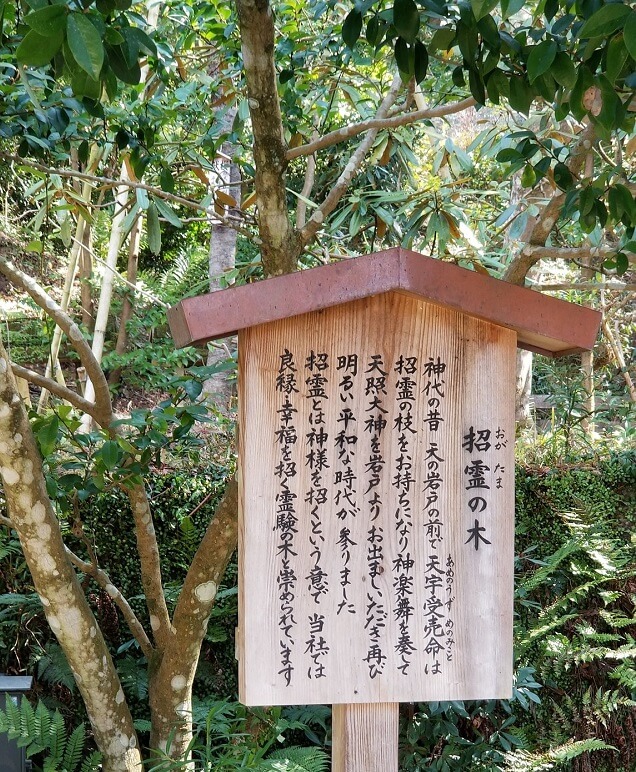 招霊の木
おが たま
神代の昔 天の岩戸の前で 天宇受売命は
あめのうず めのみこと
招霊の枝をお持ちになり 神楽舞を奏して
天照大神を岩戸より お出ましいただき 再び
明るい平和な時代が 参りました
招霊とは神様を招くという意で 当社では
良縁・幸福を招く霊験の木と崇められています